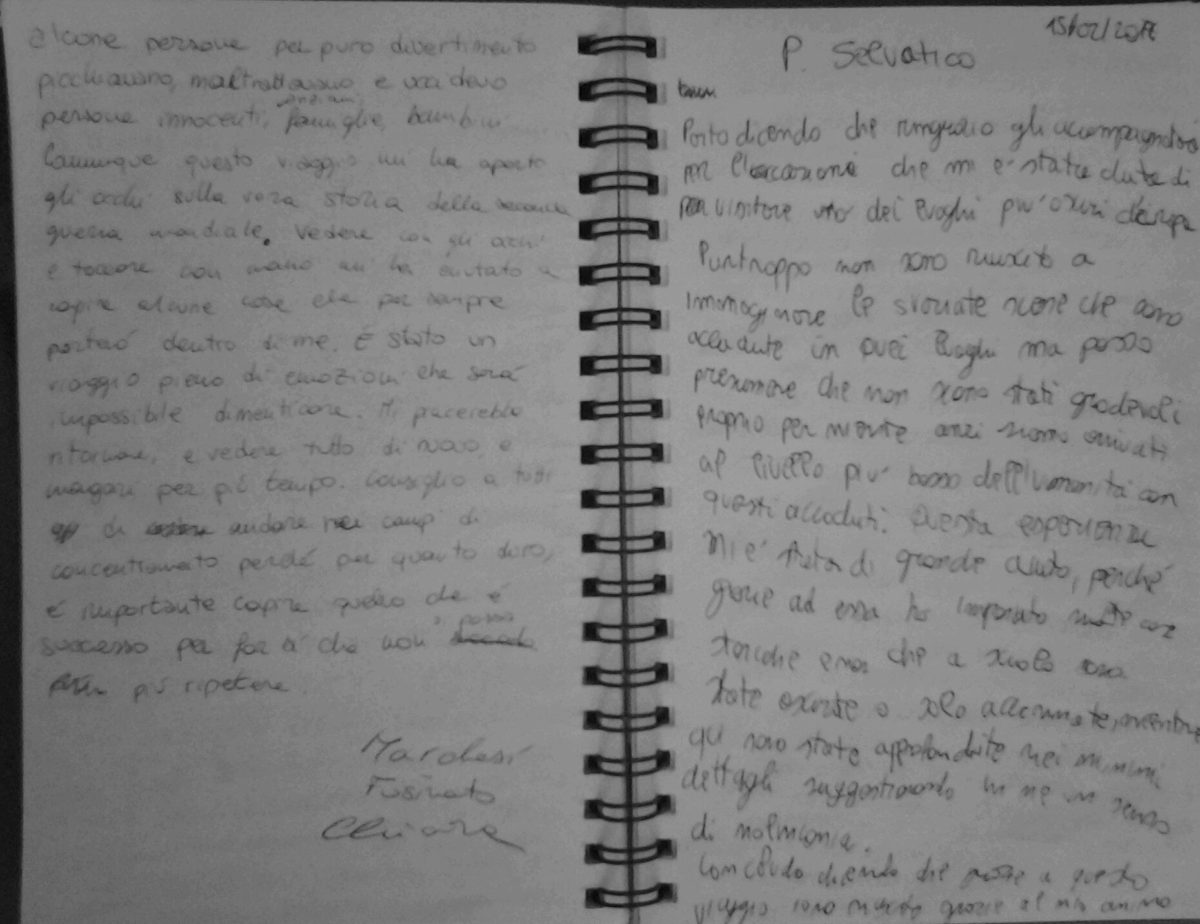 alcune persone per puro divertimento
picchiavano, maltrattavano e uccidevo
persone innocenti, anziani famiglie, bambini.
Comunque questo viaggio mi ha aperto
gli occhi sulla vera storia della seconda
guerra mondiale. Vedere con gli occhi
e toccare con mano mi ha aiutato a
capire alcune cose che per sempre
porterò dentro di me. É stato un
viaggio pieno di emozioni che sará
impossibile dimenticare. Mi piacerebbe
ritornare, e vedere tutto di nuovo, e
magari per più tempo. Consiglio a tutti
di andare nei campi di
concentramento perché per quanto duro,
é importante capire quello che é
successo per far sì che non possa
più ripetere.
Marolesi
Fusinato
Chiara
15/02/2017
P. Selvatico
Parto dicendo che ringrazio gli accompagnatori
per l'occasione che mi e' stata data di
visitare uno dei luoghi piu' oscuri d'europa
Purtroppo non sono riuscito a
immaginare le svariate scene che sono
accadute in quei luoghi ma posso
presumere che non sono stati gradevoli
proprio per niente anzi siamo arrivati
al livello piu' basso dell'umanità con
questi accaduti. Questa esperienza
mi e' stata di grande aiuto, perché
grazie ad essa ho imparato molte cose
storiche che a scuola sono
state o solo accennate, mentre
qui sono state approfondite nei minimi
dettagli suggestionando in me un senso
di malinconia.
Concludo dicendo che grazie a questo
viaggio sono riuscito grazie al mio animo